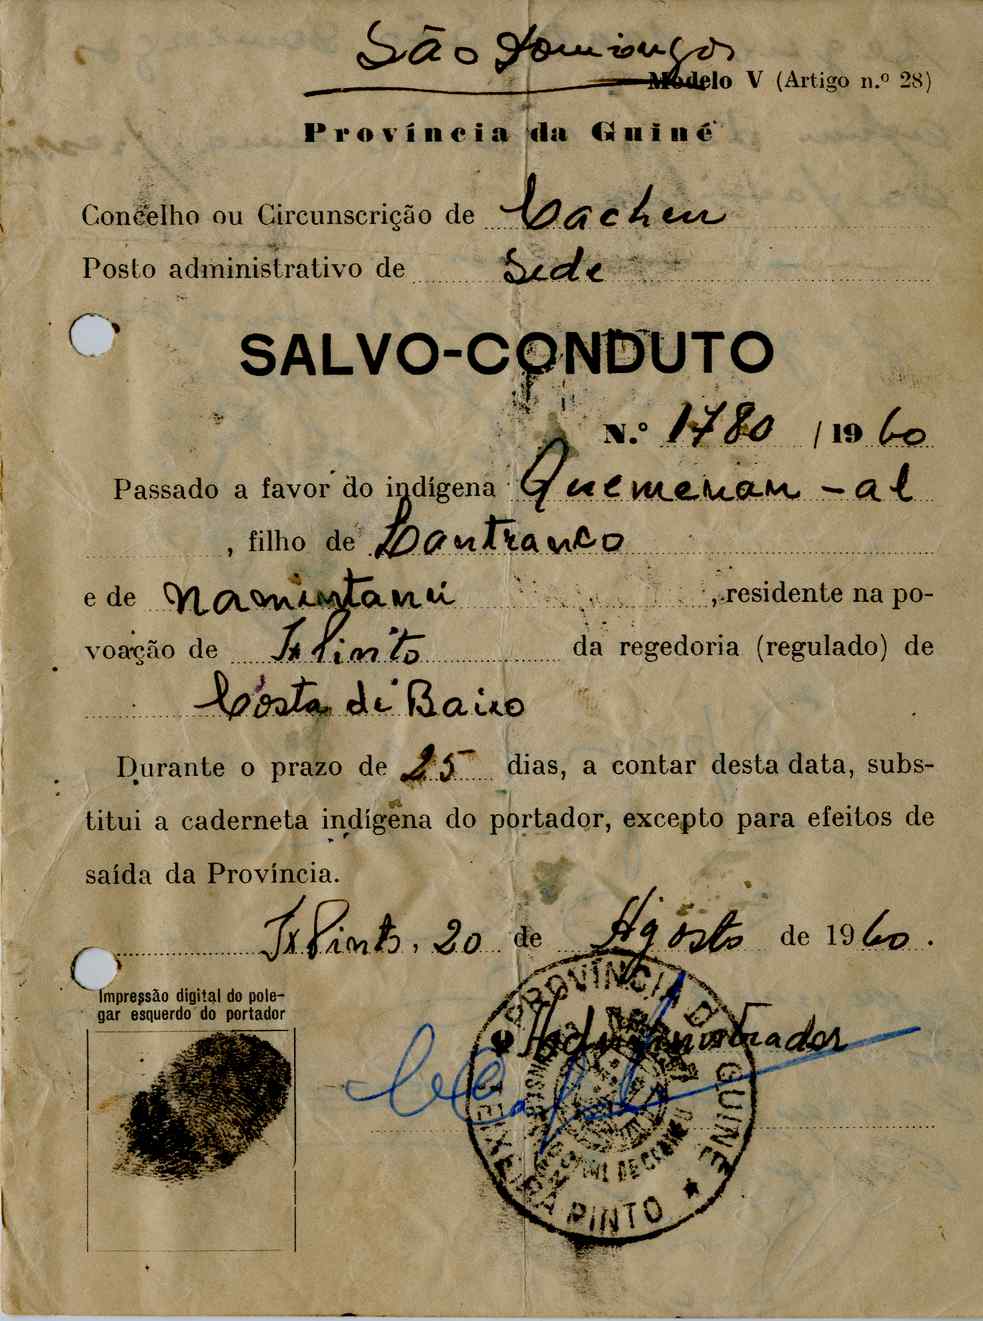 São Domingos
Modelo V (Artigo n.º 28)
Província da Guiné
Concelho ou Circunscrição de Cacheu
Posto administrativo de Sede
SALVO-CONDUTO
N.º 1780 /1960
Passado a favor do indígena Quemenan - al
, filho de Cantranco
e de Namintané , residente na po-
voação de Tx Pinto da regedoria (regulado) de
Costa de Baixo
Durante o prazo de 25 dias, a contar desta data, subs-
titui a caderneta indígena do portador, excepto para efeitos de
saída da Província.
Tx Pinto, 20 de Agosto de 1960.
Impressão digital do pole-
gar esquerdo do portador
O Administrador
PROVÍNCIA DA GUINÉ
TEIXEIRA PINTO